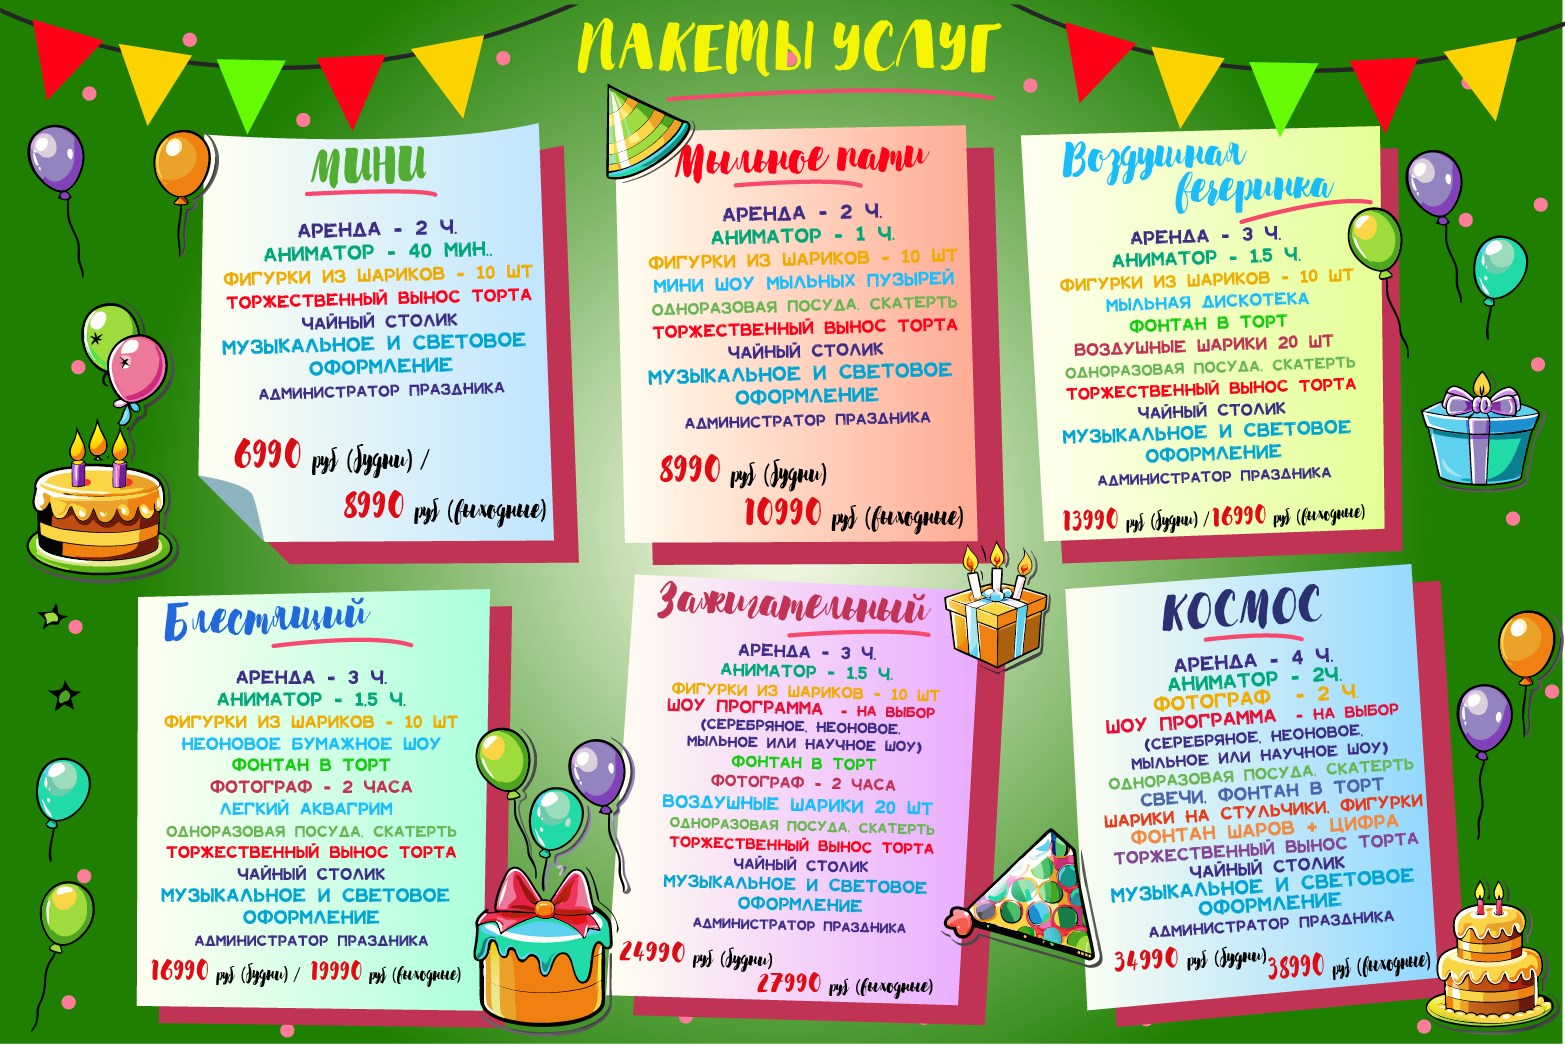 ПАКЕТЫ УСЛУГ
МИНИ
АРЕНДА - 2 Ч.
АНИМАТОР - 40 МИН..
ФИГУРКИ ИЗ ШАРИКОВ - 10 ШТ
ТОРЖЕСТВЕННЫЙ ВЫНОС ТОРТА
ЧАЙНЫЙ СТОЛИК
МУЗЫКАЛЬНОЕ И СВЕТОВОЕ
ОФОРМЛЕНИЕ
АДМИНИСТРАТОР ПРАЗДНИКА
6990 руб (будни) /
8990 руб (выходные)
Мыльное пати
АРЕНДА - 2 Ч.
АНИМАТОР - 1 Ч.
ФИГУРКИ ИЗ ШАРИКОВ - 10 ШТ
МИНИ ШОУ МЫЛЬНЫХ ПУЗЫРЕЙ
ОДНОРАЗОВАЯ ПОСУДА, СКАТЕРТЬ
ТОРЖЕСТВЕННЫЙ ВЫНОС ТОРТА
ЧАЙНЫЙ СТОЛИК
МУЗЫКАЛЬНОЕ И СВЕТОВОЕ
ОФОРМЛЕНИЕ
АДМИНИСТРАТОР ПРАЗДНИКА
8990 руб (будни)
10990 руб (выходные)
Воздушная
вечеринка
АРЕНДА - 3 Ч.
АНИМАТОР - 1.5 Ч.
ФИГУРКИ ИЗ ШАРИКОВ - 10 ШТ
МЫЛЬНАЯ ДИСКОТЕКА
ФОНТАН В ТОРТ
ВОЗДУШНЫЕ ШАРИКИ 20 ШТ
ОДНОРАЗОВАЯ ПОСУДА, СКАТЕРТЬ
ТОРЖЕСТВЕННЫЙ ВЫНОС ТОРТА
ЧАЙНЫЙ СТОЛИК
МУЗЫКАЛЬНОЕ И СВЕТОВОЕ
ОФОРМЛЕНИЕ
АДМИНИСТРАТОР ПРАЗДНИКА
13990 руб (будни) / 16990 руб (выходные)
Блестящий
АРЕНДА - 3 Ч.
АНИМАТОР - 1.5 Ч.
ФИГУРКИ ИЗ ШАРИКОВ - 10 ШТ
НЕОНОВОЕ БУМАЖНОЕ ШОУ
ФОНТАН В ТОРТ
ФОТОГРАФ - 2 ЧАСА
ЛЕГКИЙ АКВАГРИМ
ОДНОРАЗОВАЯ ПОСУДА, СКАТЕРТЬ
ТОРЖЕСТВЕННЫЙ ВЫНОС ТОРТА
ЧАЙНЫЙ СТОЛИК
МУЗЫКАЛЬНОЕ И СВЕТОВОЕ
ОФОРМЛЕНИЕ
АДМИНИСТРАТОР ПРАЗДНИКА
16990 руб (будни) / 19990 руб (выходные)
Зажигательный
АРЕНДА - 3 Ч.
АНИМАТОР - 1.5 Ч.
ФИГУРКИ ИЗ ШАРИКОВ - 10 ШТ
ШОУ ПРОГРАММА - НА ВЫБОР
(СЕРЕБРЯНОЕ, НЕОНОВОЕ,
МЫЛЬНОЕ ИЛИ НАУЧНОЕ ШОУ)
ФОНТАН В ТОРТ
ФОТОГРАФ - 2 ЧАСА
ВОЗДУШНЫЕ ШАРИКИ 20 ШТ
ОДНОРАЗОВАЯ ПОСУДА, СКАТЕРТЬ
ТОРЖЕСТВЕННЫЙ ВЫНОС ТОРТА
ЧАЙНЫЙ СТОЛИК
МУЗЫКАЛЬНОЕ И СВЕТОВОЕ
ОФОРМЛЕНИЕ
АДМИНИСТРАТОР ПРАЗДНИКА
24990 руб (будни)
27990 руб (выходные)
КОСМОС
АРЕНДА - 4 Ч.
АНИМАТОР - 2Ч.
ФОТОГРАФ - 2 Ч.
ШОУ ПРОГРАММА - НА ВЫБОР
(СЕРЕБРЯНОЕ, НЕОНОВОЕ,
МЫЛЬНОЕ ИЛИ НАУЧНОЕ ШОУ)
ОДНОРАЗОВАЯ ПОСУДА, СКАТЕРТЬ
СВЕЧИ, ФОНТАН В ТОРТ
ШАРИКИ НА СТУЛЬЧИКИ, ФИГУРКИ
ФОНТАН ШАРОВ + ЦИФРА
ТОРЖЕСТВЕННЫЙ ВЫНОС ТОРТА
ЧАЙНЫЙ СТОЛИК
МУЗЫКАЛЬНОЕ И СВЕТОВОЕ
ОФОРМЛЕНИЕ
АДМИНИСТРАТОР ПРАЗДНИКА
34990 руб (будни) 38990 руб (выходные)